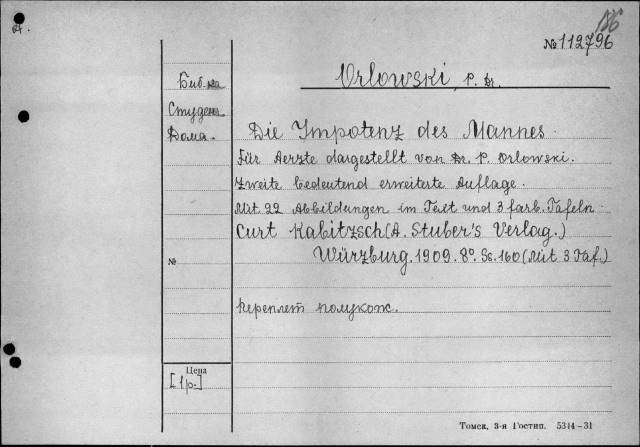 А.
186
№112796
Библ-ка
Студенч.
Дома.
Orlowski, P. Dr.
Die Impotenz des Mannes.
Für Aerzte dargestellt von Dr. P. Orlowski.
Zweite bedeutend erweiterte Auflage.
Mit 22 Abbildungen im Text und 3 farb. Tafeln.
Curt Kabitzsch (A. Stuber's Verlag.)
Würzburg. 1909. 8º. Ss. 160 (Mit 3 Taf.)
№
переплет полукож.
Цена
[1р.]
Томск, 3-я Гостип. 5314-31